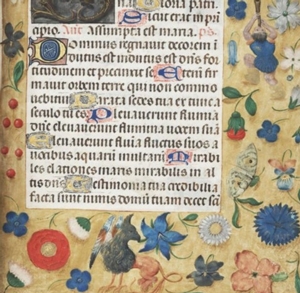 loria patri
Sicut erat in pri
cipio. Ane Assumpta est maria. ps.
Dominus regnavit decorem i
dutus est indutus est dns for
titudinem et precinxit se Eteni fir
mavit orbem terre qui non commo
vebitur Parata sedes tua ex tunc a
seculo tu es Elevaverunt flumina
dne elevaverunt flumina vocem sua
Elevaverunt flumina fluctus suos a
vocibus aquarum multarum Mirabi
les elationes maris mirabilis in al
tis dns Testimonia tua credibilia
facta sunt nimis domum tuam decet sci